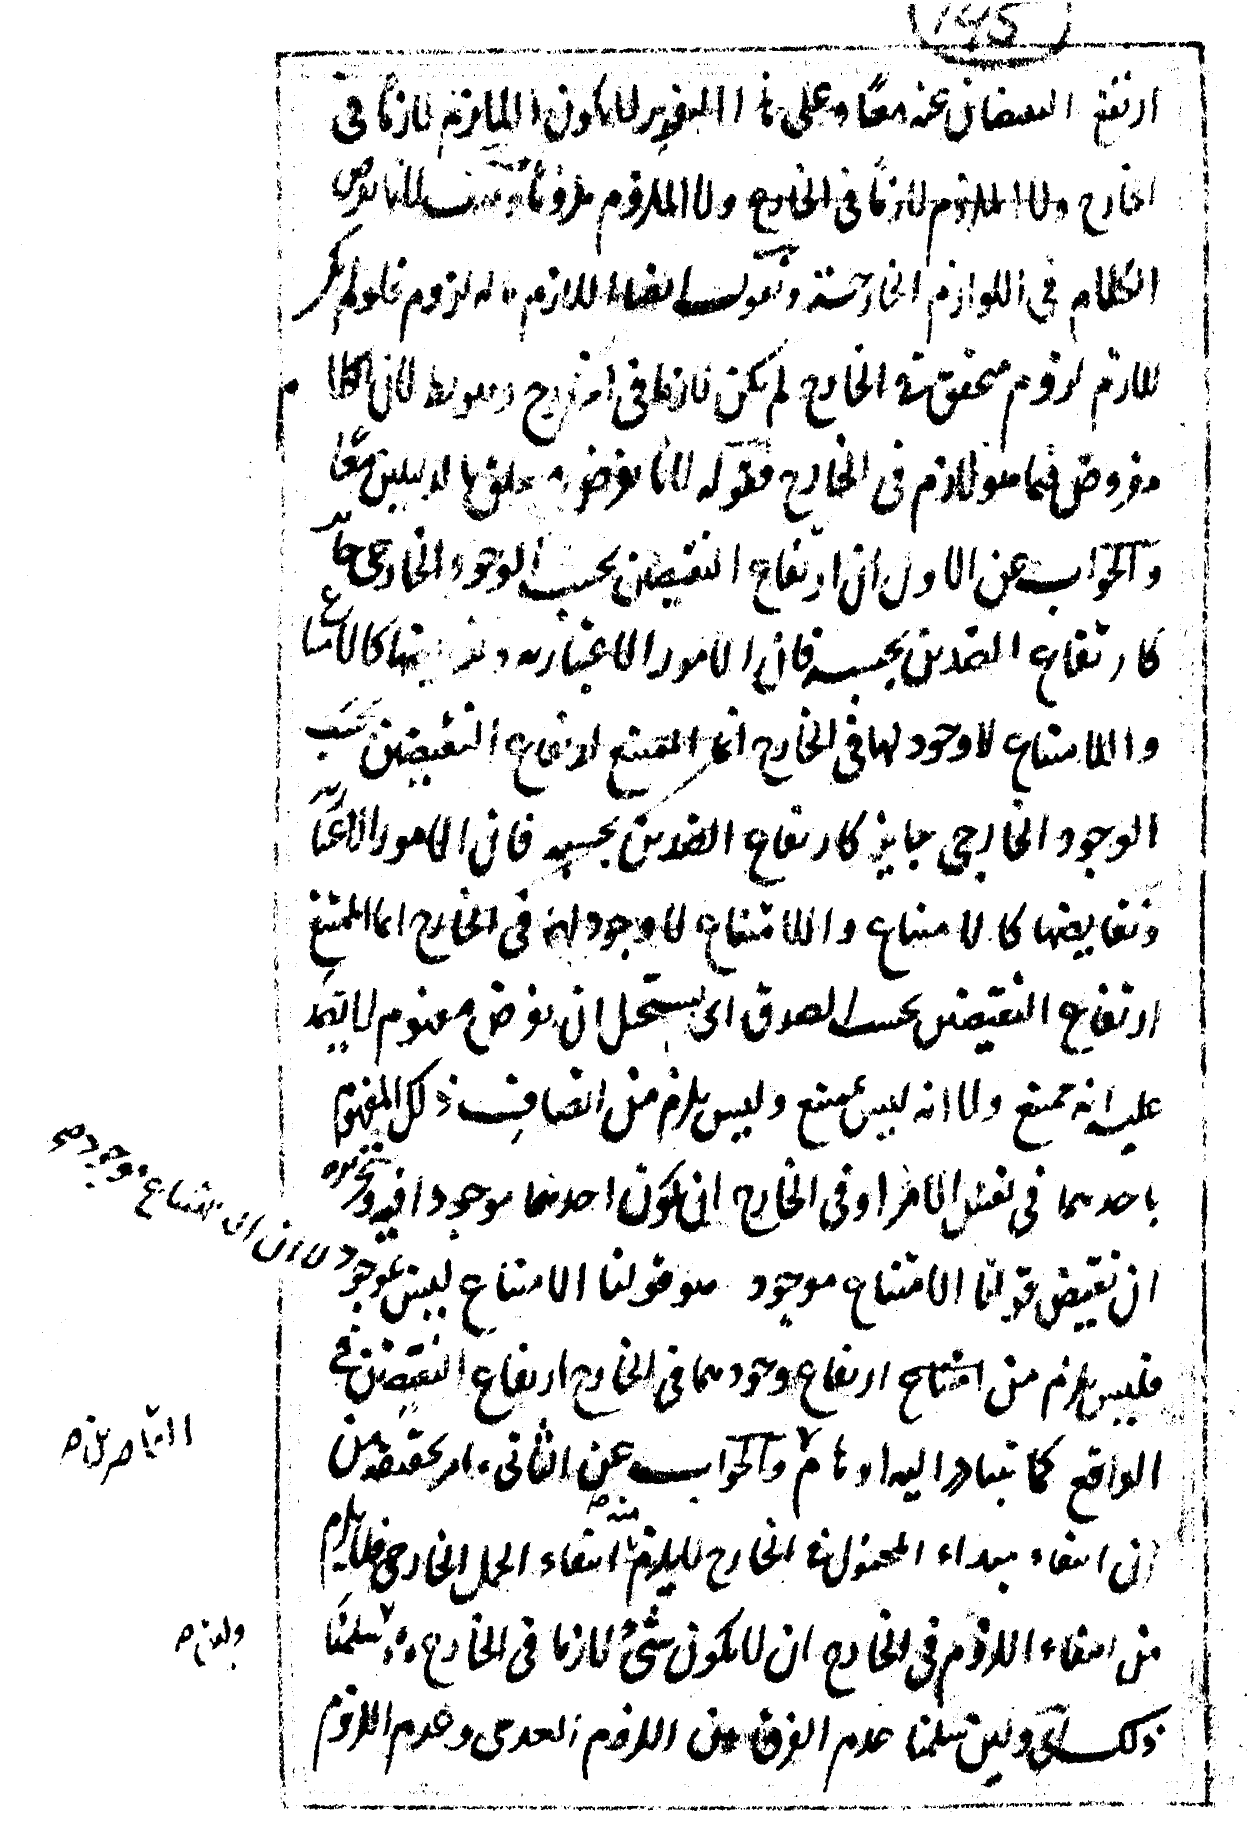 ارتفع النقيضان عنه معا وعلى هذا التقدير لا يكون اللازم لازما في
الخارج ولا الملزوم لازما في الخارج ولا الملزوم ملزوما لانا نفرض
الكلام في اللوازم الخارجية ونقول ايضا اللازم له لزوم فلو لم يكن
للازم لزوم متحقق في الخارج لم يكن لازما في الخارج وهو بط لان الكلام
مفروض فيما هو لازم في الخارج فقوله لانا نفرض متعلق بالدليلين معا
والجواب عن الاول ان ارتفاع النقيضين بحسب الوجود الخارجي جايز
كارتفاع الضدين بحسبه فان الامور الاعتبارية ونقايضها كالامتناع
واللاامتناع لا وجود لها في الخارج انما الممتنع ارتفاع النقيضين بحسب
الوجود الخارجي جايز كارتفاع الضدين بحسبه فان الامور الاعتبارية
ونقايضها كالامتناع واللاامتناع لا وجود لها في الخارج انما الممتنع
ارتفاع النقيضين بحسب الصدق اى يستحيل ان نفرض مفهوم لا يصدق
عليه انه ممتنع ولا انه ليس بممتنع وليس يلزم من اتصاف ذلك المفهوم
باحدهما في نفس الامر او في الخارج ان يكون احدهما موجودا فيه وتحريره
ان نقيض قولنا الامتناع موجود هو قولنا الامتناع ليس بموجود لا ان اللاامتناع موجود صح
فليس يلزم من ارتفاع وجودهما في الخارج ارتفاع النقيضين في
الواقع كما تبادر اليه اوهام القاصرين ص والجواب عن الثانى ما مر تحقيقه من
ان انتفاء مبداء المحمول في الخارج لا يلزم منه ص انتفاء الحمل الخارجي فلا يلزم
من انتفاء اللزوم في الخارج ان لا يكون شئ لازما في الخارج ولئن ص سلمنا
ذلك اى ولئن سلمنا عدم الفرق بين اللزوم العدمى وعدم اللزوم